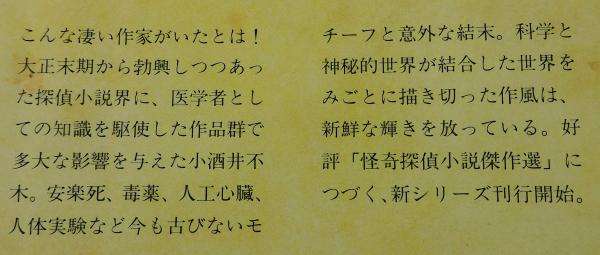 こんな凄い作家がいたとは！
大正末期から勃興しつつあっ
た探偵小説界に、医学者とし
ての知識を駆使した作品群で
多大な影響を与えた小酒井不
木。安楽死、毒薬、人工心臓、
人体実験など今も古びないモ
チーフと意外な結末。科学と
神秘的世界が結合した世界を
みごとに描き切った作風は、
新鮮な輝きを放っている。好
評「怪奇探偵小説傑作選」に
つづく、新シリーズ刊行開始。